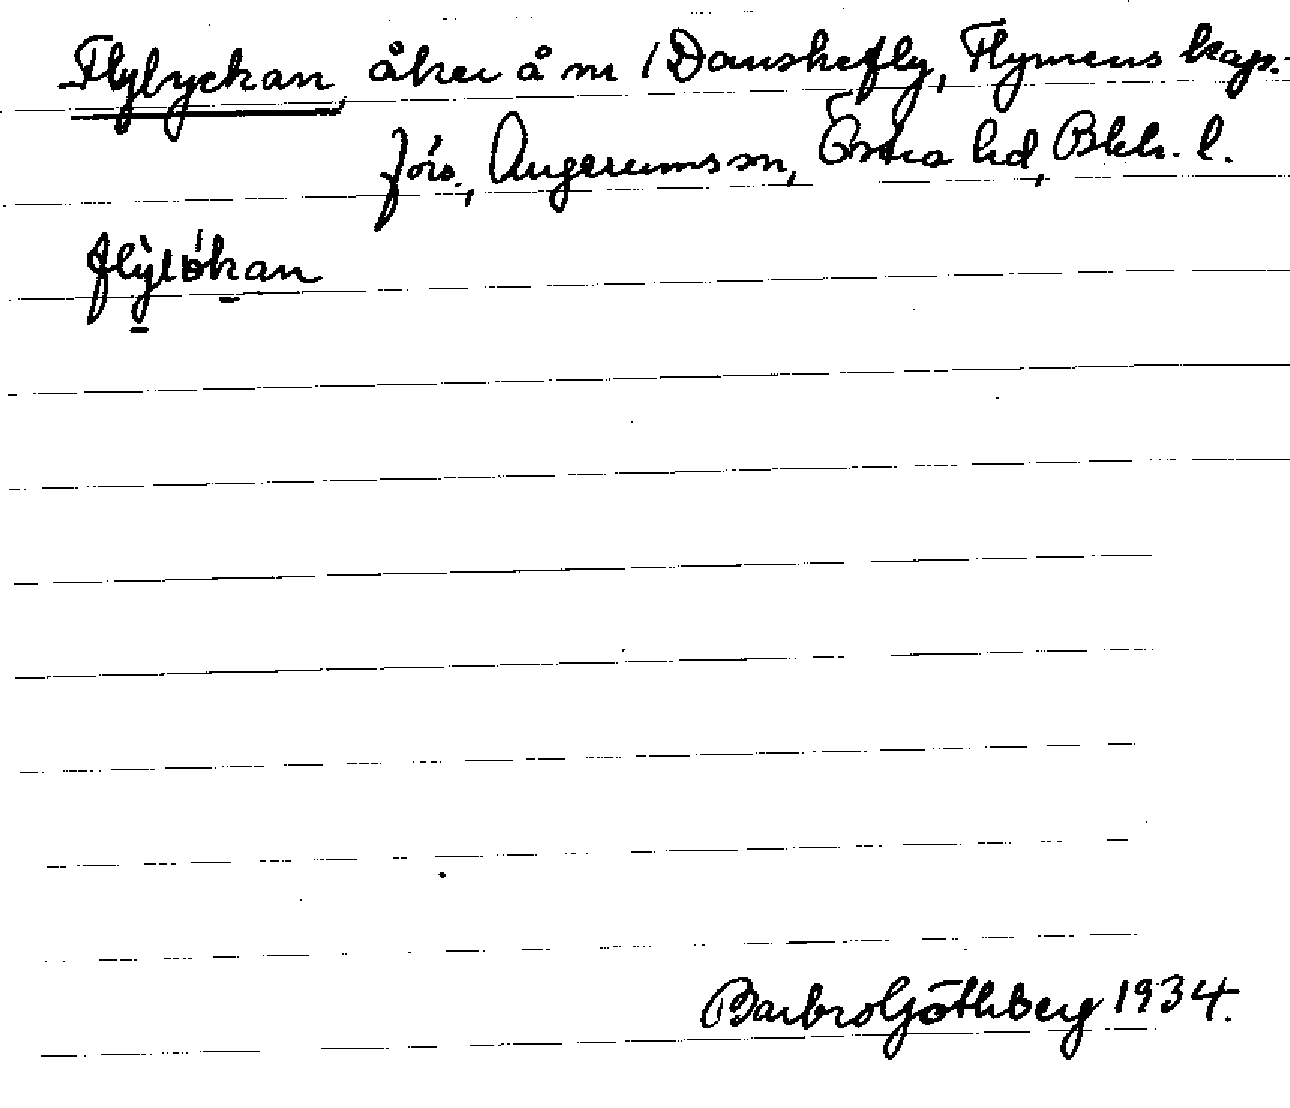 Flylyckan, åker å nr 1 Danskefly, Flymens kap.-
förs., Augerumssn, Östra hd, Blek. l.
flỳlökan
Barbro Göthberg 1934.